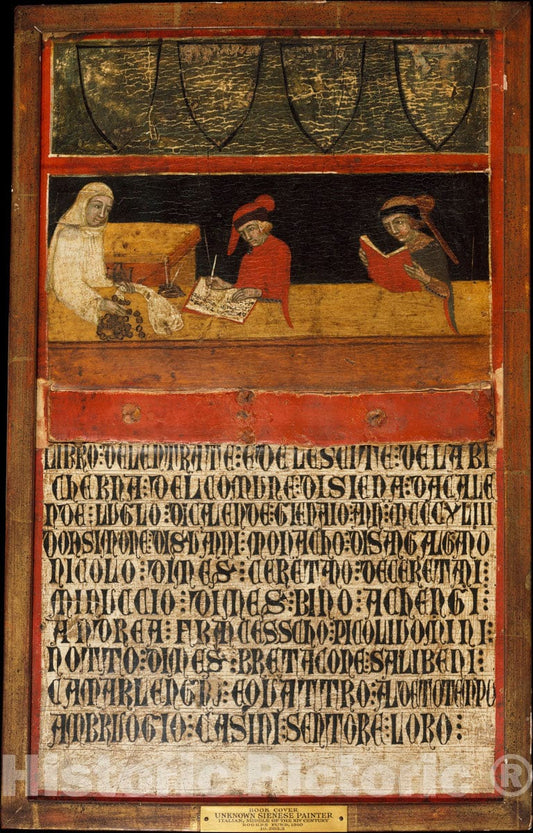 LIBRO : DELENTRATE : E DE LESCITE : DE LA BI
CHERNA : DEL COMUNE : DI SIENA : DA CALE
NDE : LUGLO : DI CALENDE : GIENAIO : ANI : MCCCXLIII
DON SIMONE : DI S : DANI : MONACHO : DI SAN GALGANO
NICOLO : DI MES : CERETANO : DE CERETANI :
MINUCCIO : DI MES : BINO : ACHENGI :
ANDREA : FRANCESSCHO : PICOLUOMINI :
NOTTO : DI MES : BRETACONE : SALIBENI :
CAMARLENGNI : E QUATTRO : AL DETO TENPO
AMBRUOGIO : CASINI : SENTORE LORO :
Historic Pictoric ®
BOOK COVER
UNKNOWN SIENESE PAINTER
ITALIAN, MIDDLE OF THE XIV CENTURY
ROGERS FUND, 1910